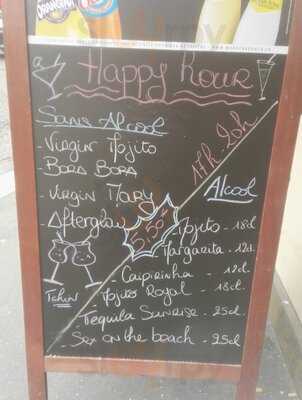 ORANGINA
Happy hour
17h - 20h
Sans Alcool
- Virgin Mojito
- Bora Bora
- Virgin Mary
- Afterglow
Tchin
5,50€
Alcool
- Mojito - 18cl
- Margarita - 12cl.
- Caipirinha - 12cl
- Mojito Royal - 18cl.
- Tequila Sunrise - 25cl
- Sex on the beach - 25cl